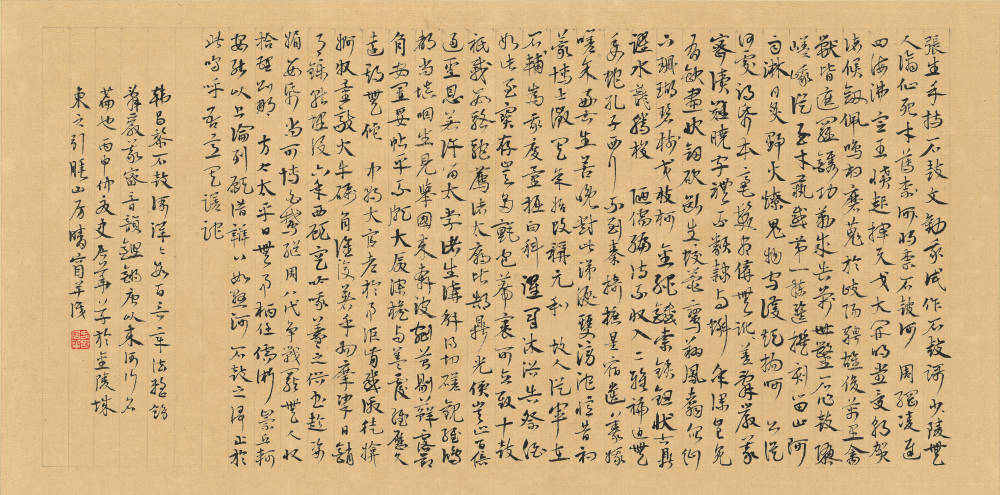 張生手持石鼓文勸我試作石鼓歌少陵無
人謫仙死才薄將奈石鼓何周綱陵遲
四海沸宣王憤起揮天戈大開明堂受朝賀
諸侯劍佩鳴相磨蒐於岐陽騁雄俊萬里禽
獸皆遮羅鐫功勒成告萬世鑿石作鼓隳
嵯峨從臣才藝咸第一揀選撰刻留山阿
雨淋日炙野火燎鬼物守護煩撝呵公從
何處得紙本毫髮盡備無訛差辭嚴義
密讀難曉字體不類隸與蝌年深豈免
有缺畫快劍砍斷生蛟鼉鸞翔鳳翥眾仙
下珊瑚碧樹交枝柯金繩鐵索鎖鈕壯古鼎
躍水龍騰梭陋儒編詩不收入二雅褊迫無
委蛇孔子西行不到秦掎摭星宿遺羲娥
嗟余好古生苦晚對此涕淚雙滂沱憶昔初
蒙博士徵其年始改稱元和故人從軍在
右輔為我度量掘臼科濯冠沐浴告祭酒
如此至寶存豈多氈包席裹可立致十鼓
祇載數駱駝薦諸太廟比郜鼎光價豈止百倍
過聖恩若許留太學諸生講解得切磋觀經鴻
都尚填咽坐見舉國來奔波剜苔剔蘚露節
角安置妥帖平不頗大廈深簷與蓋覆經歷久
遠期無佗中朝大官老於事詎肯感激徒媕
婀牧童敲火牛礪角誰復著手為摩挲日銷
月鑠就埋沒六年西顧空吟哦羲之俗書趁姿
媚數紙尚可博白鵝繼周八代爭戰罷無人收
拾理則那方今太平日無事柄任儒術崇丘軻
安能以上論列願借辨口如懸河石鼓之歌止於
此嗚呼吾意其蹉跎
韓昌黎石鼓歌洋洋數百言章法整飭
辭嚴義密音韻鏗鏘唐以來詩歌名
篇也丙申仲夏草於金陵城
東之引睡山房晴窗識